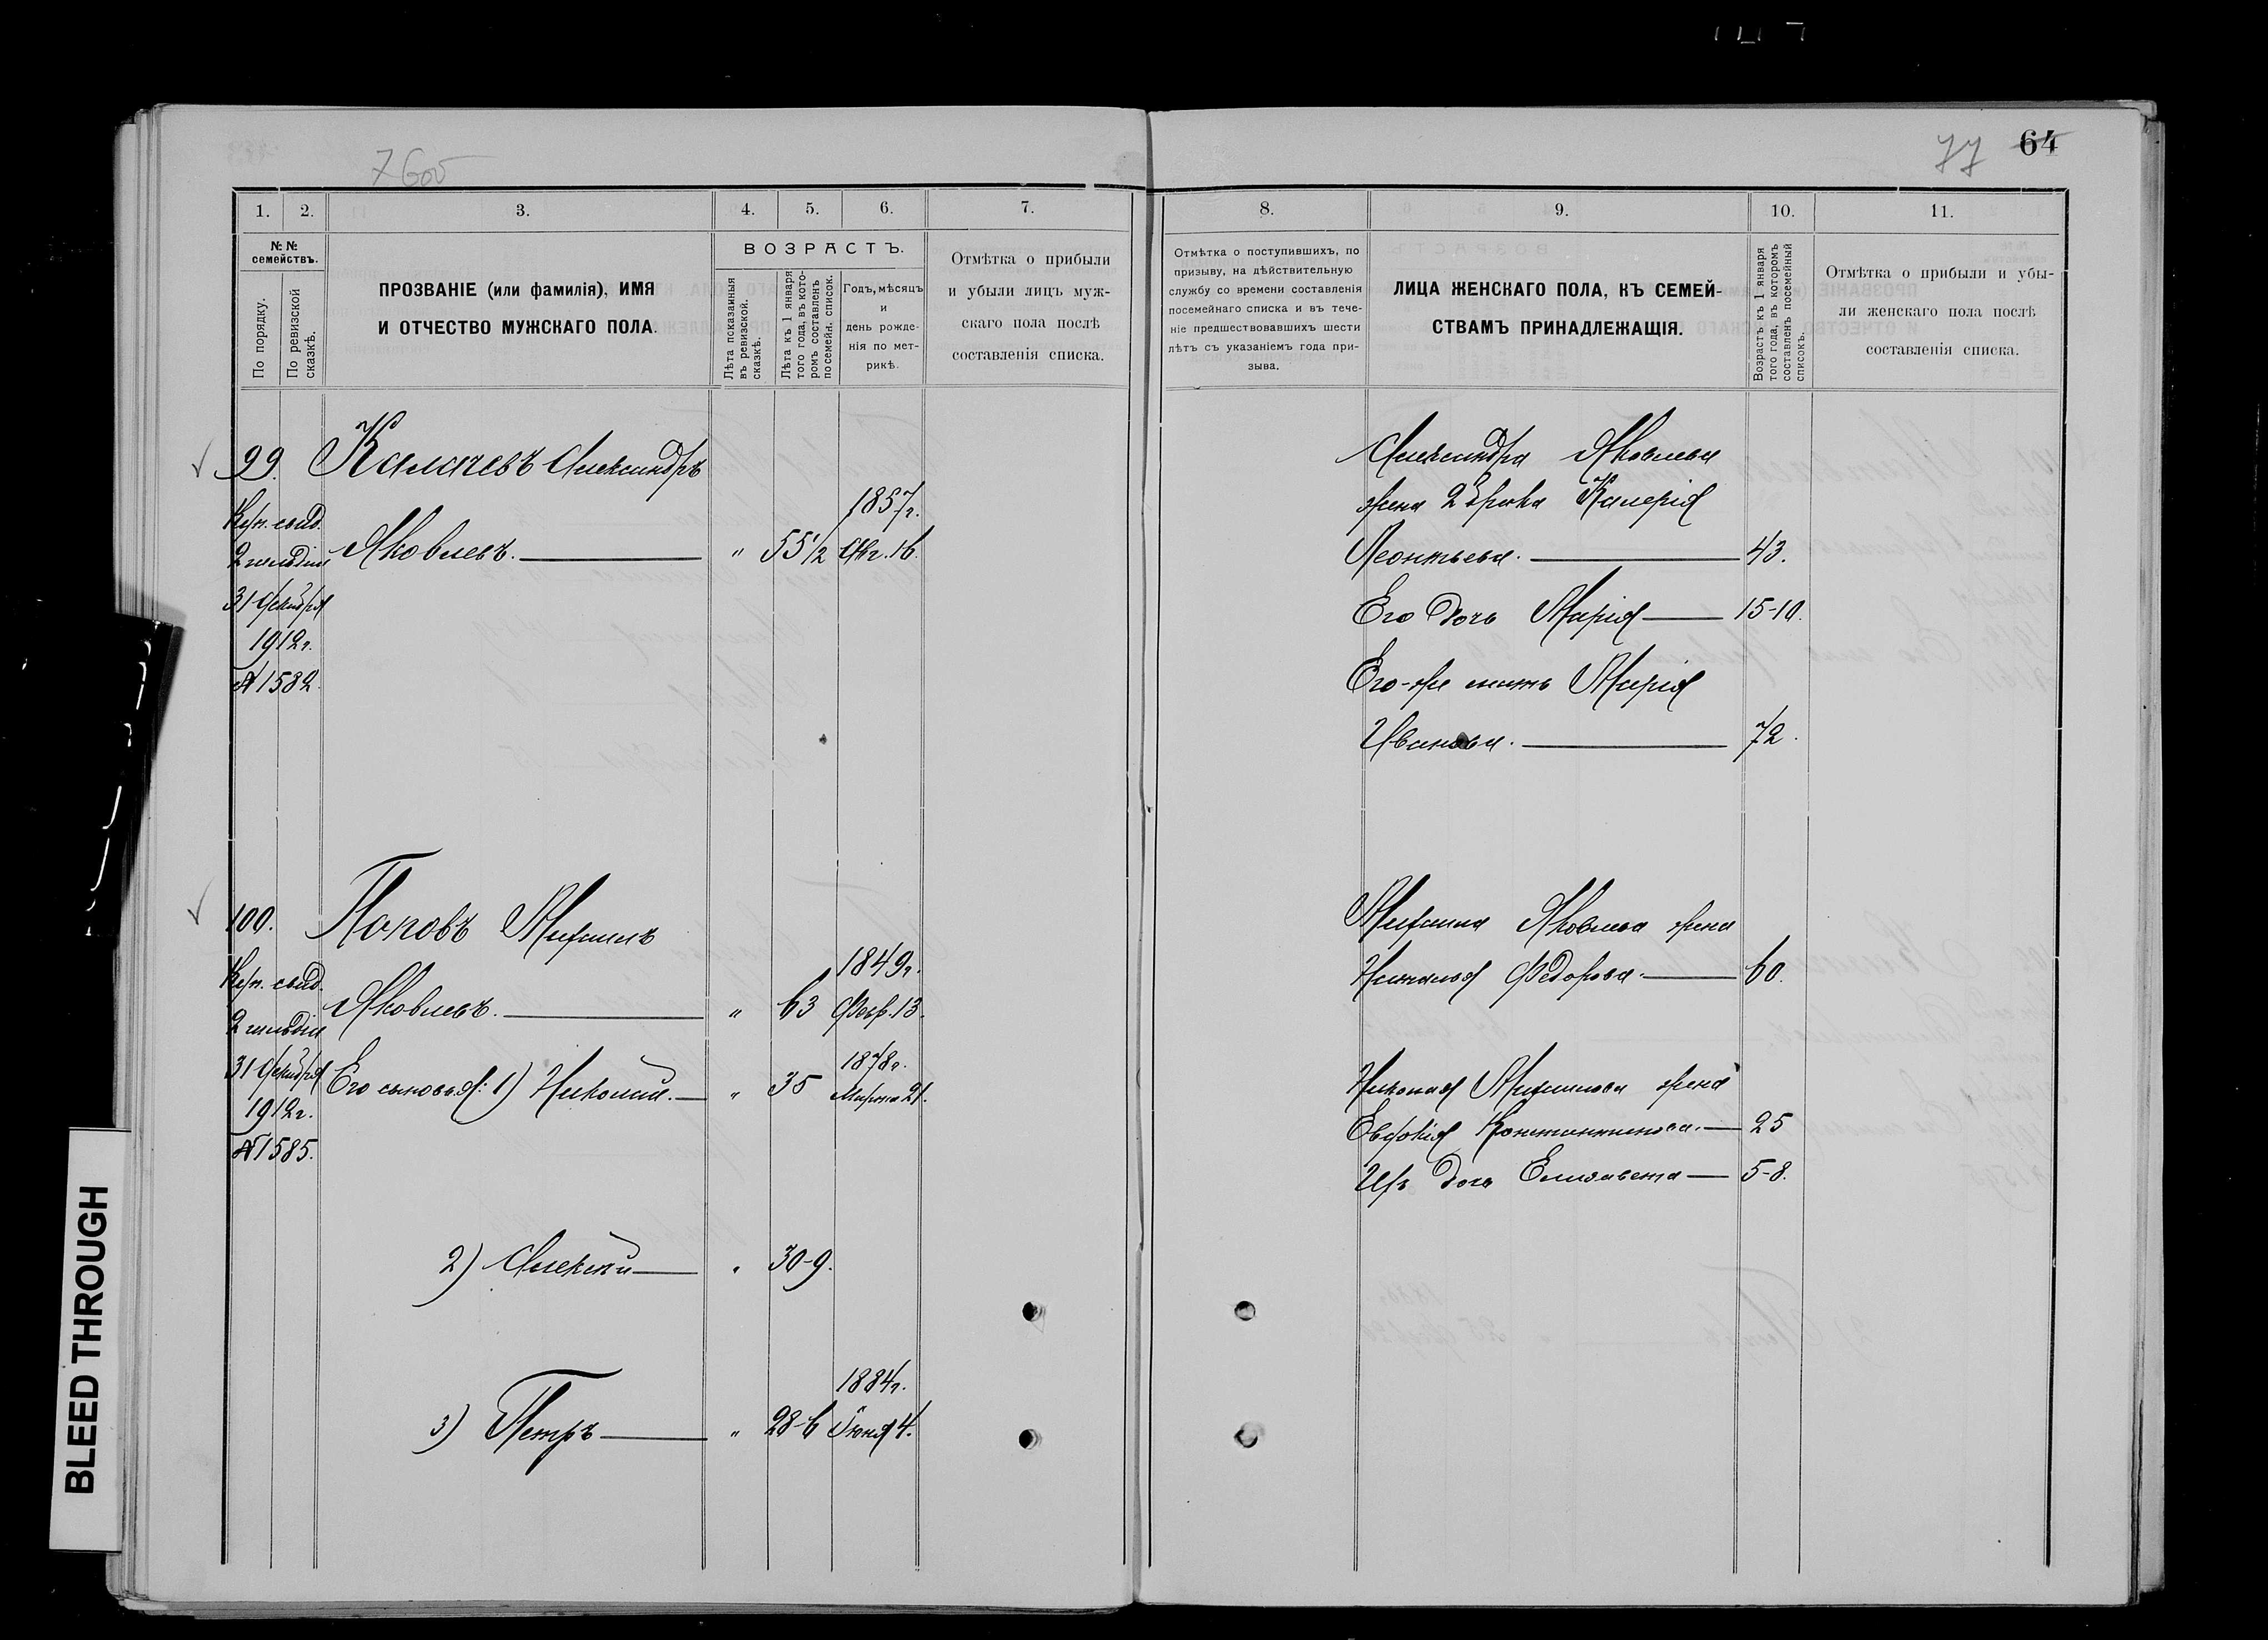 7 600
77 64
1. 2. 3. 4. 5. 6. 7. 8. 9. 10. 11.
№ №
семействъ.
По порядку.
По ревизской
сказкѣ.
ПРОЗВАНІЕ (или фамилія), ИМЯ
И ОТЧЕСТВО МУЖСКАГО ПОЛА.
ВОЗРАСТЪ.
Лѣта показанныя
въ ревизской.
сказкѣ.
Лѣта къ 1 января
того года, въ кото-
ромъ составленъ
посемейн. список.
Годъ, мѣсяцъ
и
день рожде-
нія по мет-
рикѣ.
Отмѣтка о прибыли
и убыли лицъ муж-
скаго пола послѣ
составленія списка.
Отмѣтка о поступившихъ, по
призыву, на дѣйствительную
службу со времени составленія
посемейнаго списка и въ тече-
ніе предшествовавшихъ шести
лѣтъ съ указаніемъ года при-
зыва.
ЛИЦА ЖЕНСКАГО ПОЛА, КЪ СЕМЕЙ-
СТВАМЪ ПРИНАДЛЕЖАЩІЯ.
Возрастъ къ 1 января
того года, въ которомъ
составленъ посемейный
списокъ.
Отмѣтка о прибыли и убы-
ли женскаго пола послѣ
составленія списка.
99. Калачевъ Александръ
Куп. свид.
2 гильдіи
31 Декабря
1912 г.
№ 1582.
1857 г.
Яковлевъ. — " 55 1/2 Авг. 16.
Александра Яковлева
жена 2 брака Валерія
Леонтьева. — 43.
Его дочь Марія — 15-10.
Его-же мать Марія
Иванова. — 72.
100. Поповъ Михаилъ
Куп. свид.
2 гильдіи
31 Декабря
1912 г.
№ 1585.
1849 г.
Яковлевъ. — " 63 Февр. 13.
1878 г.
Его сыновья: 1) Николай. — " 35 Марта 21.
2) Алексѣй — " 30-9.
1884 г.
3) Петръ — " 28-6 Іюня 4.
Михаила Яковлева жена
Наталья Федорова. — 60.
Николая Михайлова жена
Евдокія Константинова. — 25
Ихъ дочь Елизавета — 5-8.
BLEED THROUGH